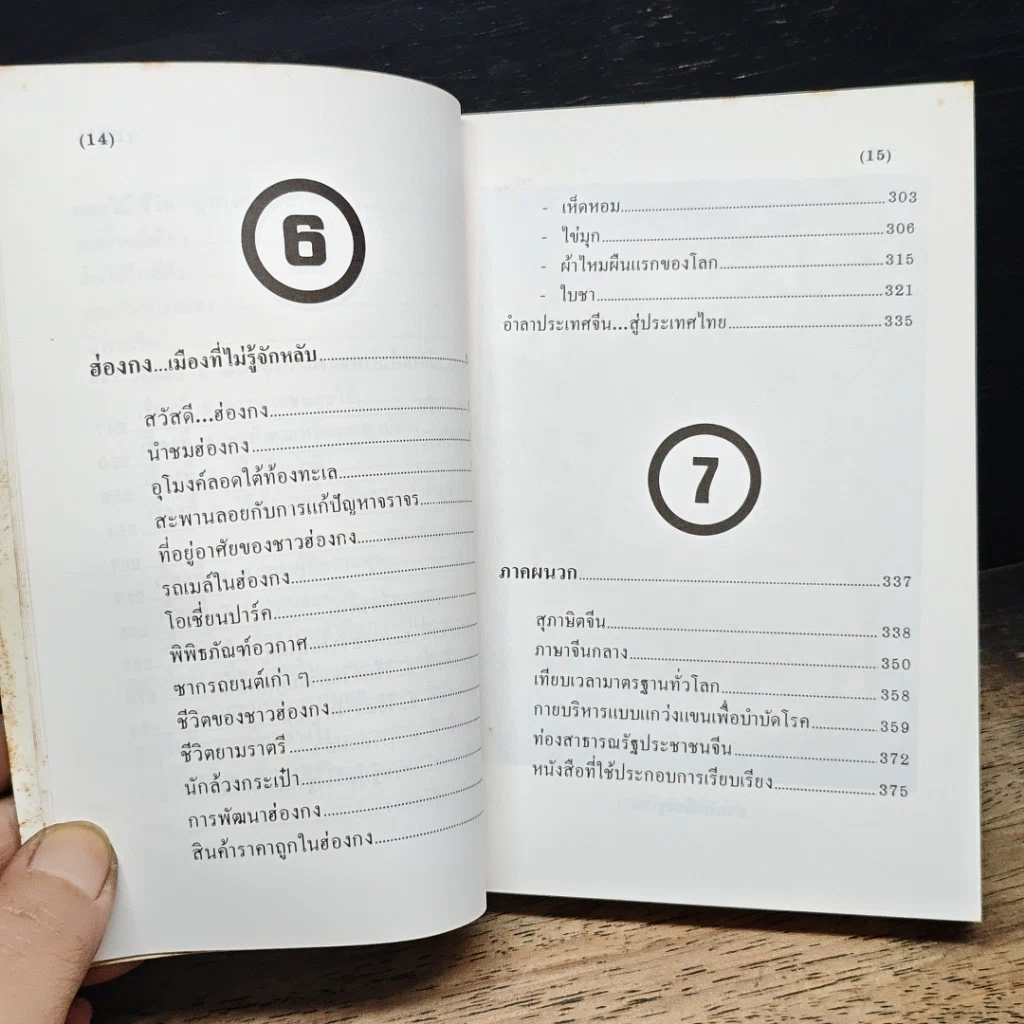 (14)
6
ฮ่องกง...เมืองที่ไม่รู้จักหลับ
สวัสดี...ฮ่องกง
นำชมฮ่องกง
อุโมงค์ลอดใต้ท้องทะเล
สะพานลอยกับการแก้ปัญหาจราจร
ที่อยู่อาศัยของชาวฮ่องกง
รถเมล์ในฮ่องกง
โอเชี่ยนปาร์ค
พิพิธภัณฑ์อวกาศ
ซากรถยนต์เก่า ๆ
ชีวิตของชาวฮ่องกง
ชีวิตยามราตรี
นักล้วงกระเป๋า
การพัฒนาฮ่องกง
สินค้าราคาถูกในฮ่องกง
(15)
- เห็ดหอม 303
- ไข่มุก 306
- ผ้าไหมผืนแรกของโลก 315
- ใบชา 321
อำลาประเทศจีน...สู่ประเทศไทย 335
7
ภาคผนวก 337
สุภาษิตจีน 338
ภาษาจีนกลาง 350
เทียบเวลามาตรฐานทั่วโลก 358
กายบริหารแบบแกว่งแขนเพื่อบำบัดโรค 359
ท่องสาธารณรัฐประชาชนจีน 372
หนังสือที่ใช้ประกอบการเรียบเรียง 375